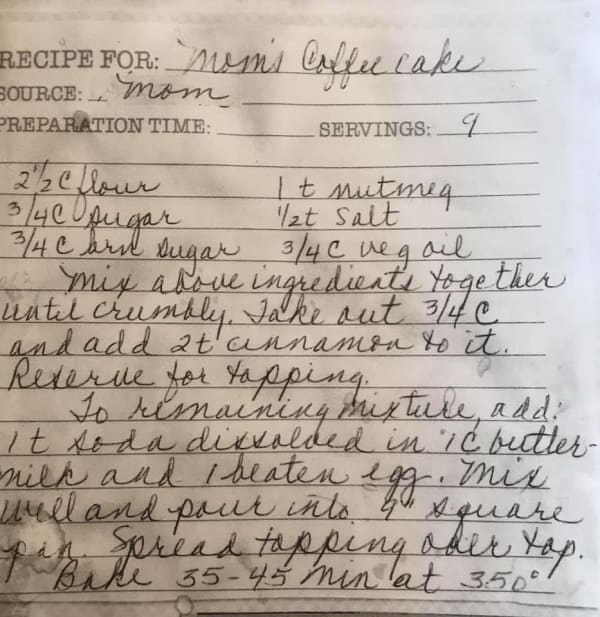 RECIPE FOR: Mom's Coffee cake
SOURCE: Mom
PREPARATION TIME: SERVINGS: 9
2 1/2 C flour 1 t nutmeg
3/4 C Sugar 1/2 t Salt
3/4 C brn Sugar 3/4 C veg oil
Mix above ingredients together
until crumbly. Take out 3/4 C
and add 2t cinnamon to it.
Reserve for topping.
To remaining mixture, add:
1 t soda dissolved in 1C butter-
milk and 1 beaten egg. Mix
well and pour into 9" square
pan. Spread topping over top.
Bake 35-45 min at 350°